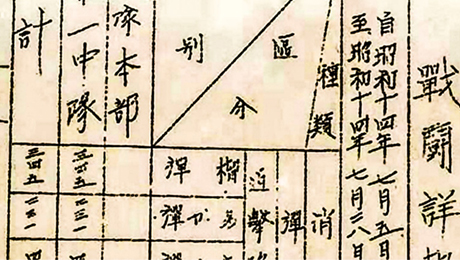 戰鬪詳
自昭和十四年七月五日
至昭和十四年七月二八日
種類
區分
別
消
彈
近撃
榴彈
あか彈
隊本部
一中隊
三四五
二三一
計
三四五
二三一